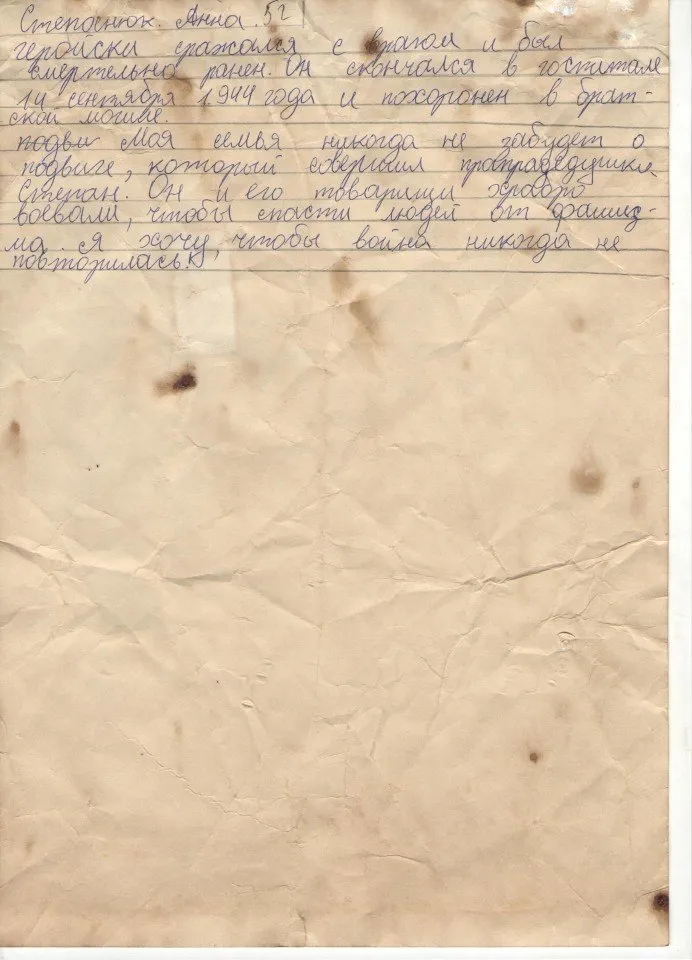 Степанюк. Анна. 5г
геройски сражался с врагом и был
смертельно ранен. Он скончался в госпитале
14 сентября 1944 года и похоронен в брат-
ской могиле.
подви Моя семья никогда не забудет о
подвиге, который совершил прапрадедушка
Степан. Он и его товарищи храбро
воевали, чтобы спасти людей от фашиз-
ма. Я хочу, чтобы война никогда не
повторилась!